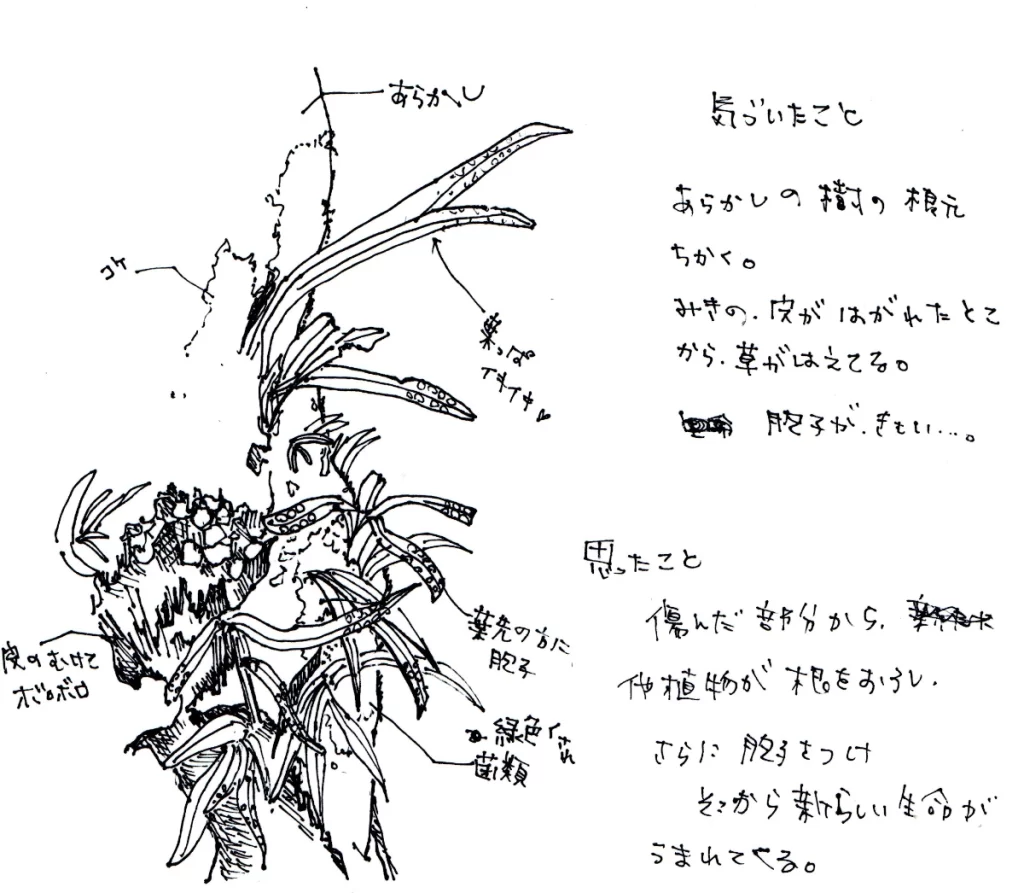 あらかし
コケ
葉っぱ
イキイキ
皮のむけて
ボロボロ
葉先の方に
胞子
緑色
菌類
気づいたこと
あらかしの樹の根元
ちかく。
みきの、皮がはがれたとこ
から、草がはえてる。
胞子が、きもい…。
思ったこと
傷んだ部分から、
他植物が根をおろし、
さらに胞子をつけ
そこから新らしい生命が
うまれてくる。